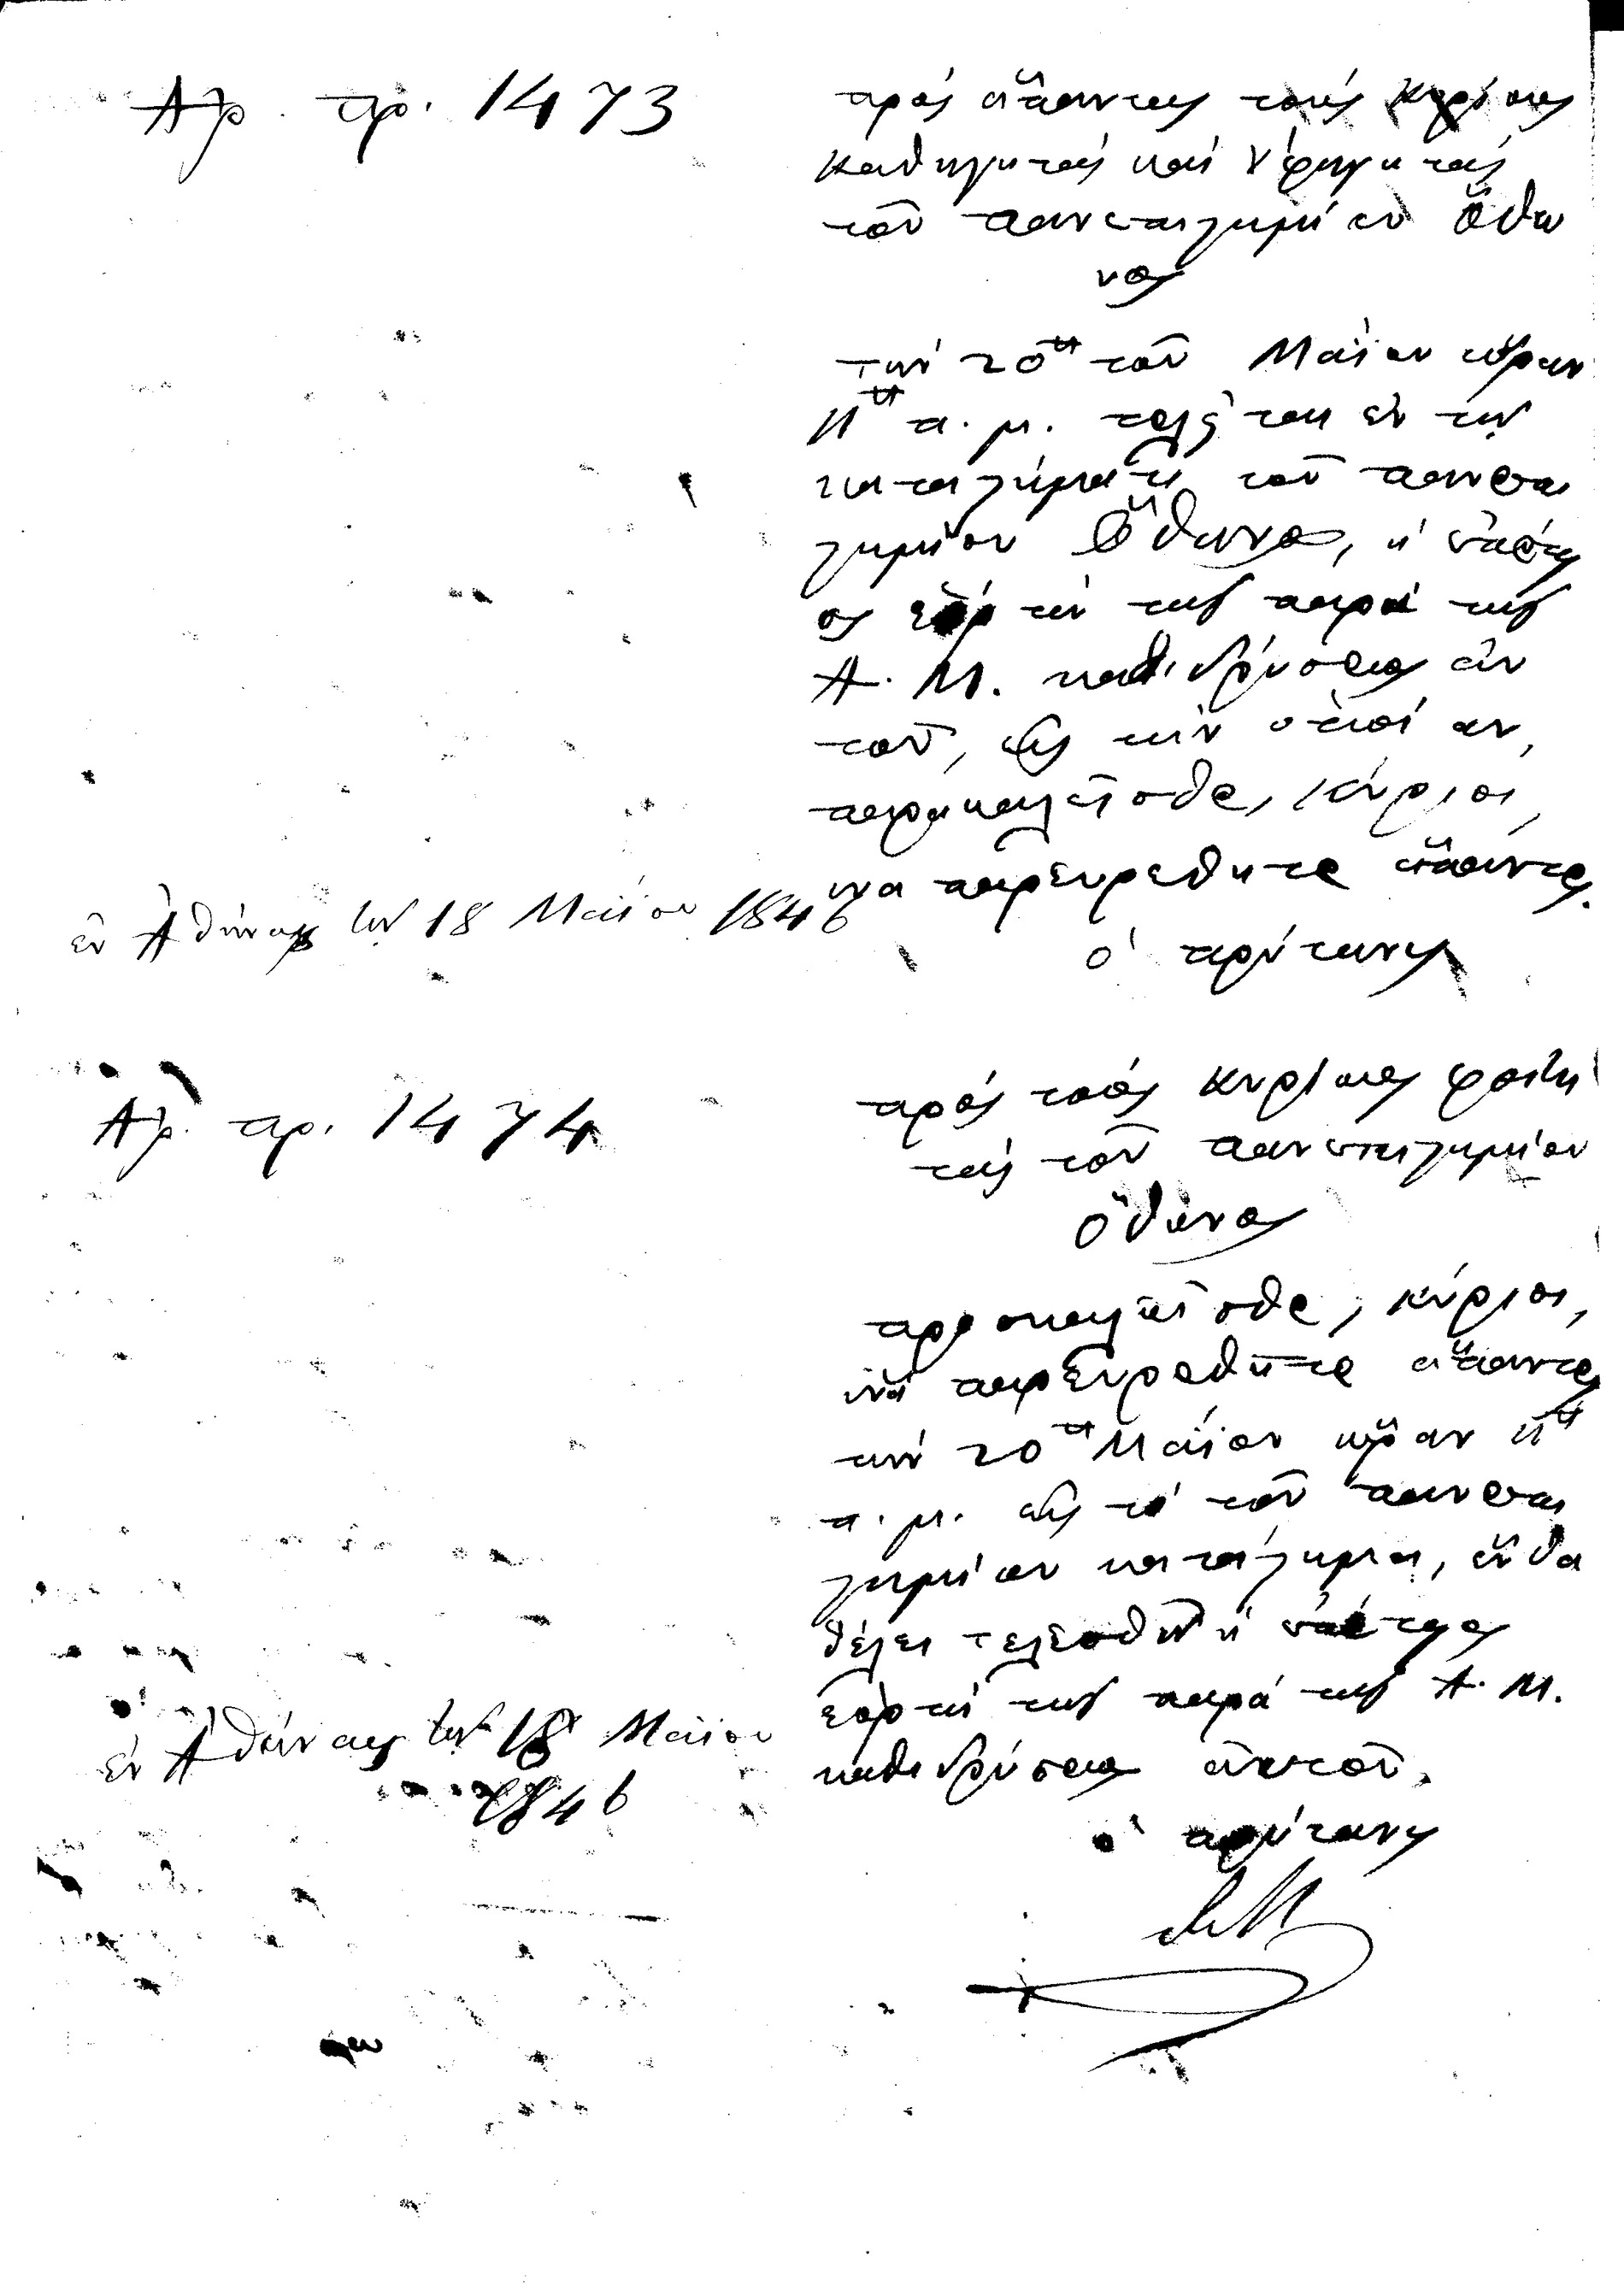 Αρ. πρ. 1473
πρὸς ἅπαντας τοὺς Κυρίους
Καθηγητάς καί Ὑφηγητάς
τοῦ πανεπιστημίου Ὄθω
νος
τήν 20ὴ τοῦ Μαΐου ὥραν
11η π. μ. τελεῖται ἐν τῷ
καταστήματι τοῦ πανεπι
στημίου Ὄθωνος, ἡ ἐπέτει
ος ἑορτή τῆς παρά τῆς
Α. Μ. καθιδρύσεως αὐ
τοῦ, εἰς τήν ὁποίαν,
παρακαλεῖσθε, Κύριοι,
ἵνα παρευρεθῆτε ἅπαντες.
ἐν Ἀθήναις τῇ 18 Μαΐου 1846
ὁ πρύτανις
Αρ. πρ. 1474
πρὸς τοὺς Κυρίους φοιτη
τάς τοῦ πανεπιστημίου
Ὄθωνος
προσκαλεῖσθε, Κύριοι,
ἵνα παρευρεθῆτε ἅπαντες
τήν 20η Μαΐου ὥραν 11η
π. μ. εἰς τό τοῦ πανεπι
στημίου κατάστημα, ἔνθα
θέλει τελεσθῆ ἡ ἐπέτειος
ἑορτή τῆς παρά τῆς Α. Μ.
καθιδρύσεως αὐτοῦ.
ἐν Ἀθήναις τῇ 18 Μαΐου
1846
ὁ πρύτανις